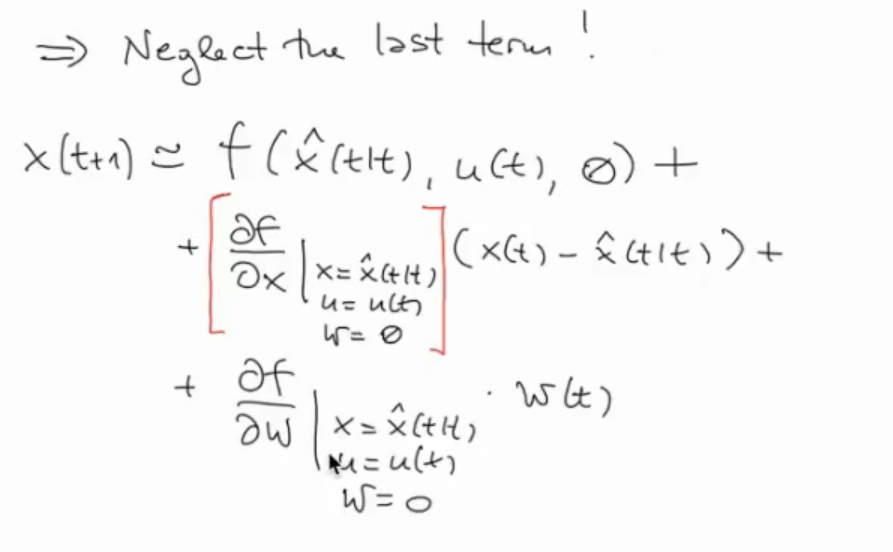 ⇒ Neglect the last term !
x(t+1) ≃ f(x̂(t|t), u(t), ∅) +
+ [∂f/∂x | x=x̂(t|t) u=u(t) w=∅] (x(t) - x̂(t|t)) +
+ ∂f/∂w | x=x̂(t|t) u=u(t) w=0 · w(t)